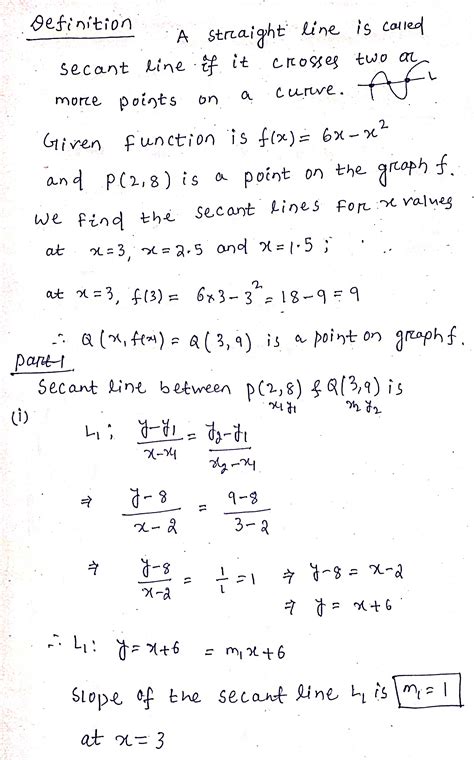 Definition A straight line is called
secant line if it crosses two or
more points on a curve. L
Given function is f(x) = 6x - x²
and P(2,8) is a point on the graph f.
we find the secant lines for x values
at x=3, x=2.5 and x=1.5 ;
at x=3, f(3) = 6×3-3² = 18-9 = 9
∴ Q(x, f(x)) = Q(3,9) is a point on graph f.
Part-1
Secant line between P(2,8) & Q(3,9) is
x₁ y₁ x₂ y₂
(i) L₁ ; y-y₁/x-x₁ = y₂-y₁/x₂-x₁
⇒ y-8/x-2 = 9-8/3-2
⇒ y-8/x-2 = 1/1 = 1 ⇒ y-8 = x-2
⇒ y = x+6
∴ L₁: y = x+6 = m₁x+6
Slope of the secant line L₁ is m₁ = 1
at x = 3